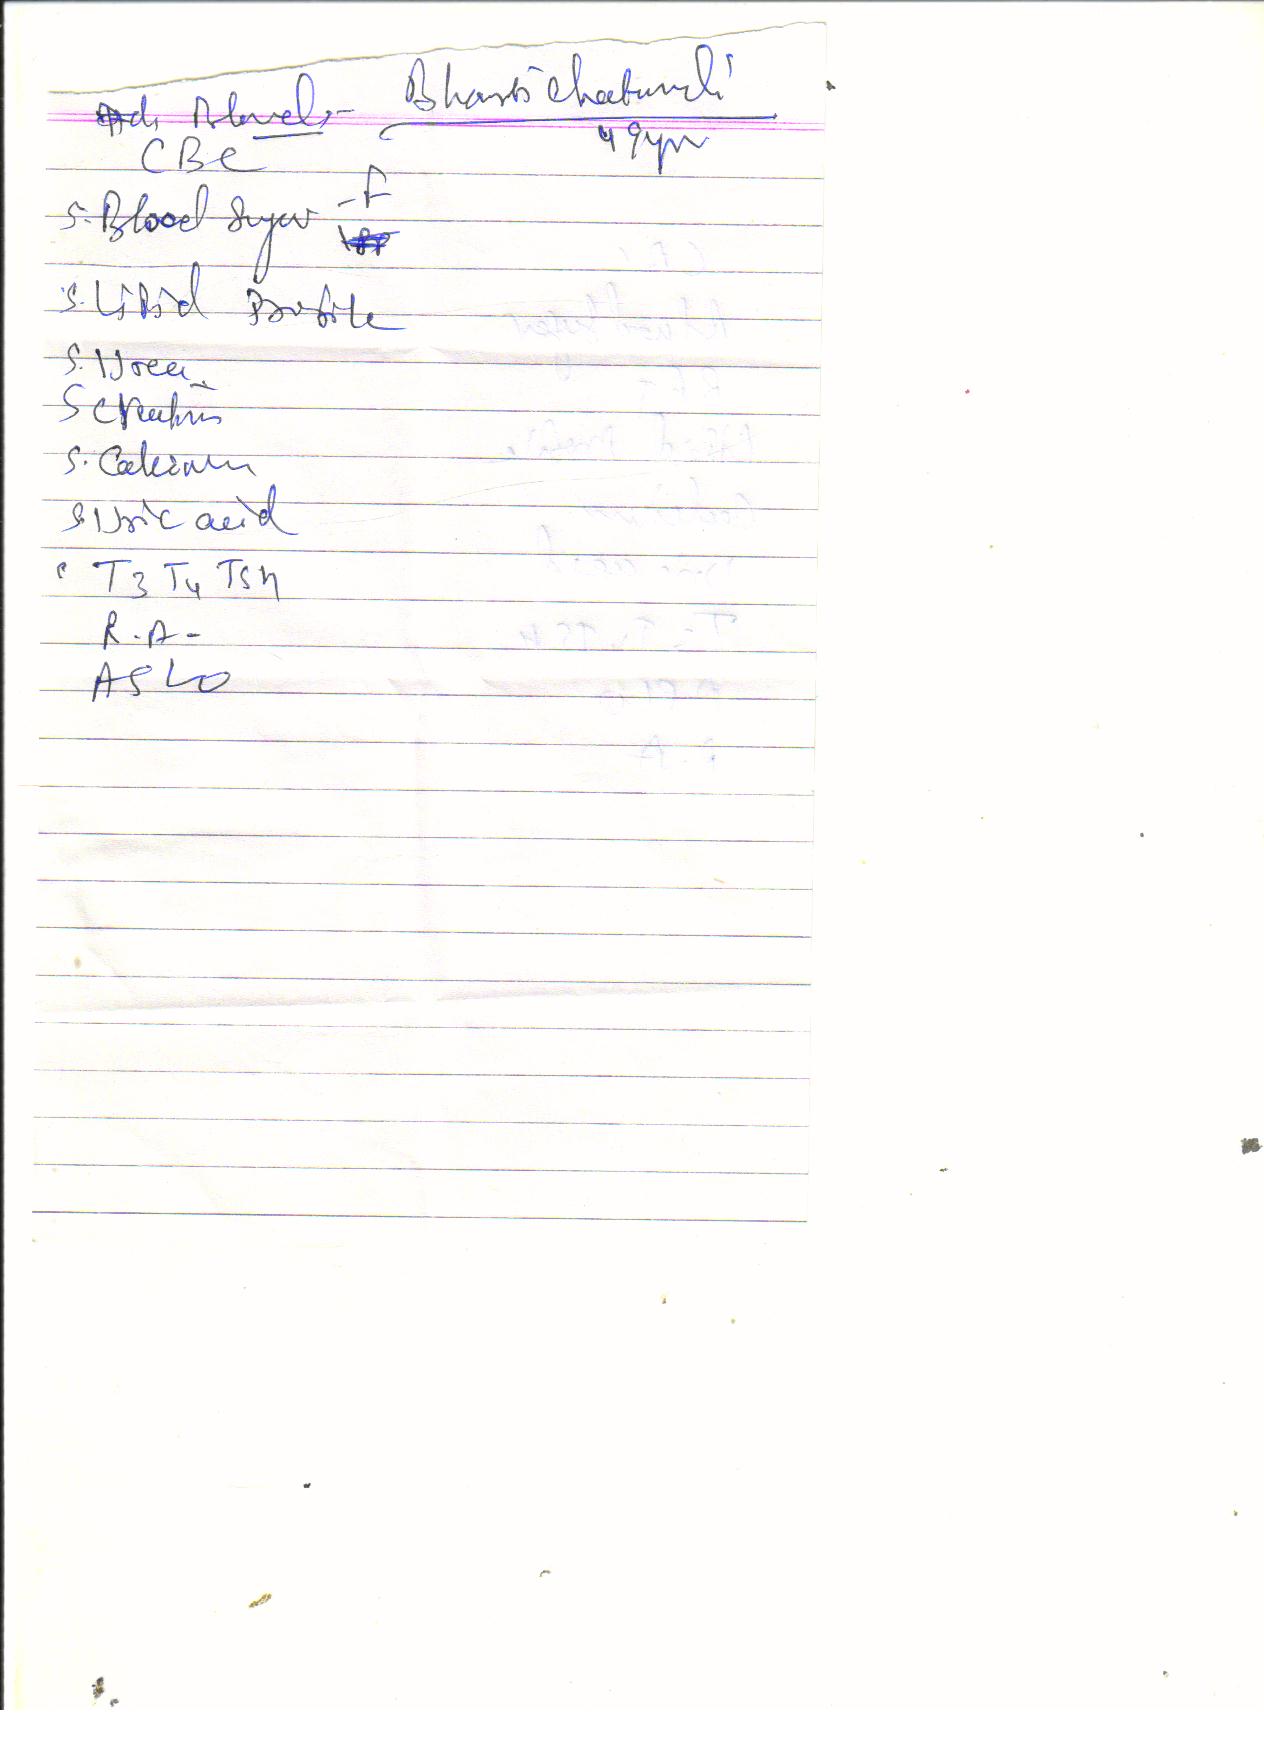 Bharti Chaturvedi
49 yrs
CBC
S. Blood Sugar - F
S. Lipid Profile
S. Urea
S Creatin
S. Calcium
S. Uric acid
T3 T4 TSH
R.A-
ASLO